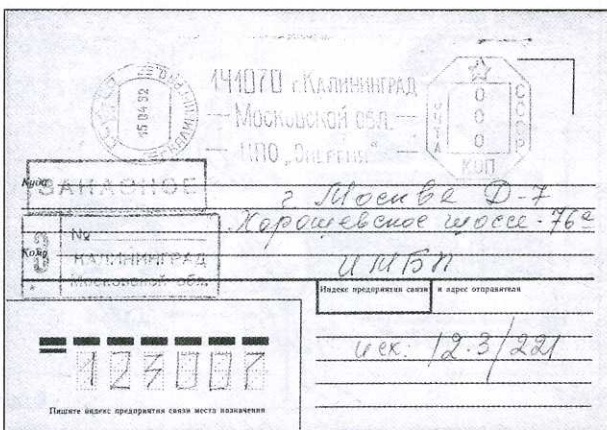 141070 г. КАЛИНИНГРАД
МОСКОВСКОЙ ОБЛ.
НПО „ЭНЕРГИЯ"
15 04 92
ПОЧТА
СССР
000
КОП
Куда
ЗАКАЗНОЕ
г Москва Д-7
Хорошевское шоссе - 76а
Кому
З
№
КАЛИНИНГРАД
Московской обл.
ИМБП
Индекс предприятия связи и адрес отправителя
исх. 12.3/221
123007
Пишите индекс предприятия связи места назначения